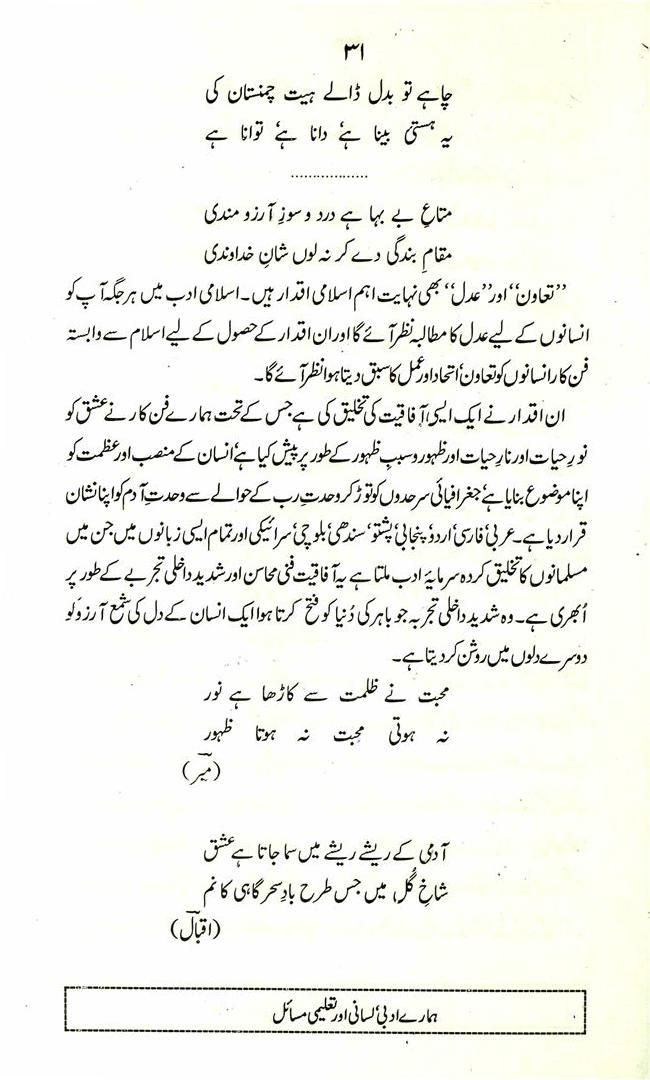 ۳۱
چاہے تو بدل ڈالے ہیت چمنستان کی
یہ ہستیٔ بینا ہے‘ دانا ہے‘ توانا ہے
..................
متاعِ بے بہا ہے درد و سوزِ آرزو مندی
مقامِ بندگی دے کر نہ لوں شانِ خداوندی
’’تعاون‘‘ اور ’’عدل‘‘ بھی نہایت اہم اسلامی اقدار ہیں۔ اسلامی ادب میں ہر جگہ آپ کو
انسانوں کے لیے عدل کا مطالبہ نظر آئے گا اور ان اقدار کے حصول کے لیے اسلام سے وابستہ
فن کار انسانوں کو تعاون‘ اتحاد اور عمل کا سبق دیتا ہوا نظر آئے گا۔
ان اقدار نے ایک ایسی آفاقیت کی تخلیق کی ہے جس کے تحت ہمارے فن کار نے عشق کو
نورِ حیات اور نارِ حیات اور ظہور و سببِ ظہور کے طور پر پیش کیا ہے‘ انسان کے منصب اور عظمت کو
اپنا موضوع بنایا ہے‘ جغرافیائی سرحدوں کو توڑ کر وحدتِ رب کے حوالے سے وحدتِ آدم کو اپنا نشان
قرار دیا ہے۔ عربی‘ فارسی‘ اردو‘ پنجابی‘ پشتو‘ سندھی‘ بلوچی‘ سرائیکی اور تمام ایسی زبانوں میں جن میں
مسلمانوں کا تخلیق کردہ سرمایۂ ادب ملتا ہے یہ آفاقیت فنی محاسن اور شدید داخلی تجربے کے طور پر
اُبھری ہے۔ وہ شدید داخلی تجربہ جو باہر کی دُنیا کو فتح کرتا ہوا ایک انسان کے دل کی شمع آرزو کو
دوسرے دلوں میں روشن کر دیتا ہے۔
محبت نے ظلمت سے کاڑھا ہے نور
نہ ہوتی محبت نہ ہوتا ظہور
(میر)
آدمی کے ریشے ریشے میں سما جاتا ہے عشق
شاخِ گُل میں جس طرح بادِ سحر گاہی کا نم
(اقبال)
ہمارے ادبی‘ لسانی اور تعلیمی مسائل